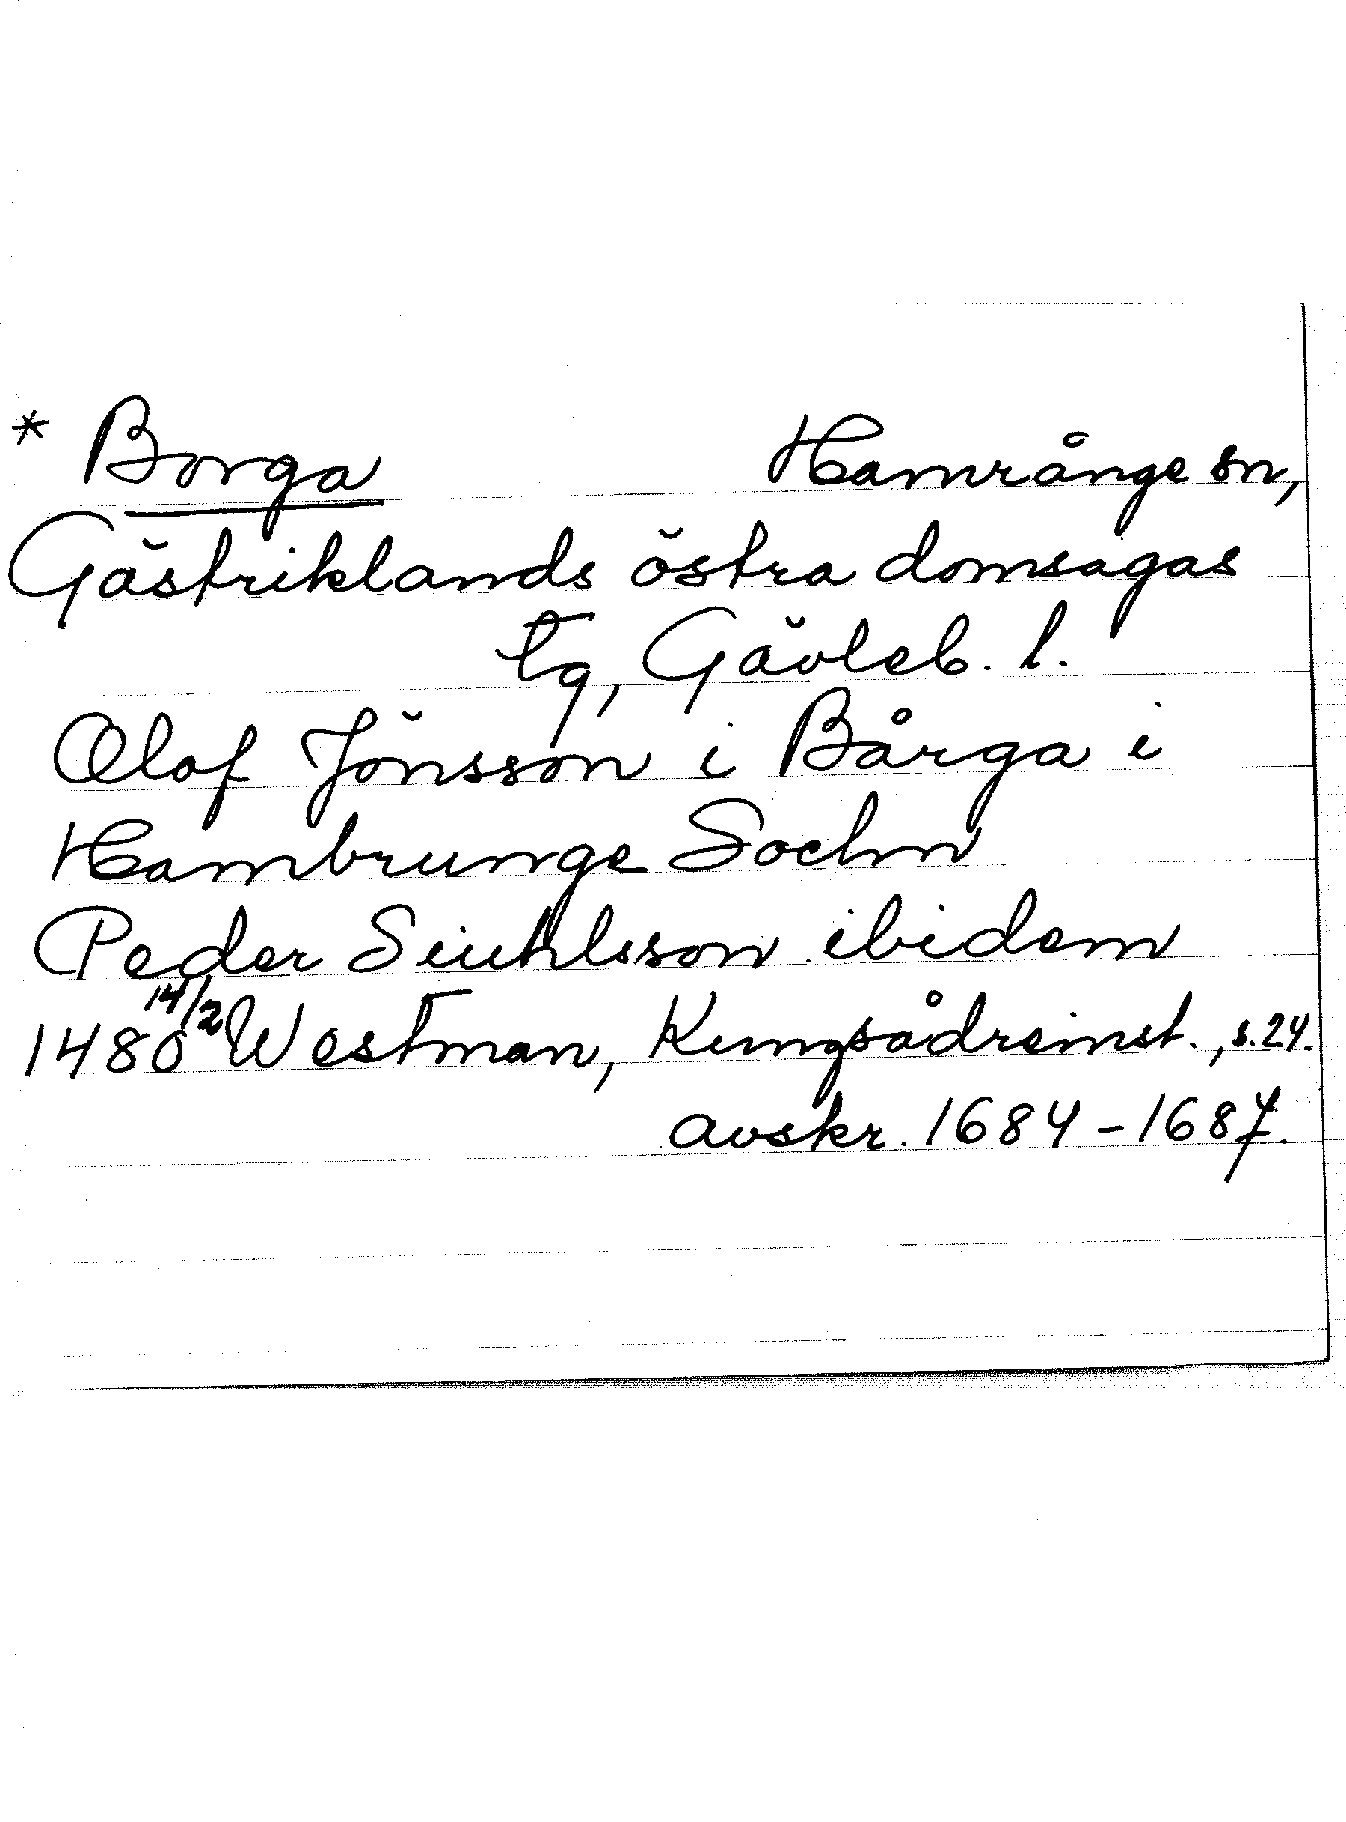 * Borga Hamrånge sn,
Gästriklands östra domsagas
tg, Gävleb. l.
Olof Jönsson i Bårga i
Hambrunge Sochn
Peder Siuhlsson ibidem
1480 14/2 Westman, Kungsådreinst., s. 24.
avskr. 1684-1687.